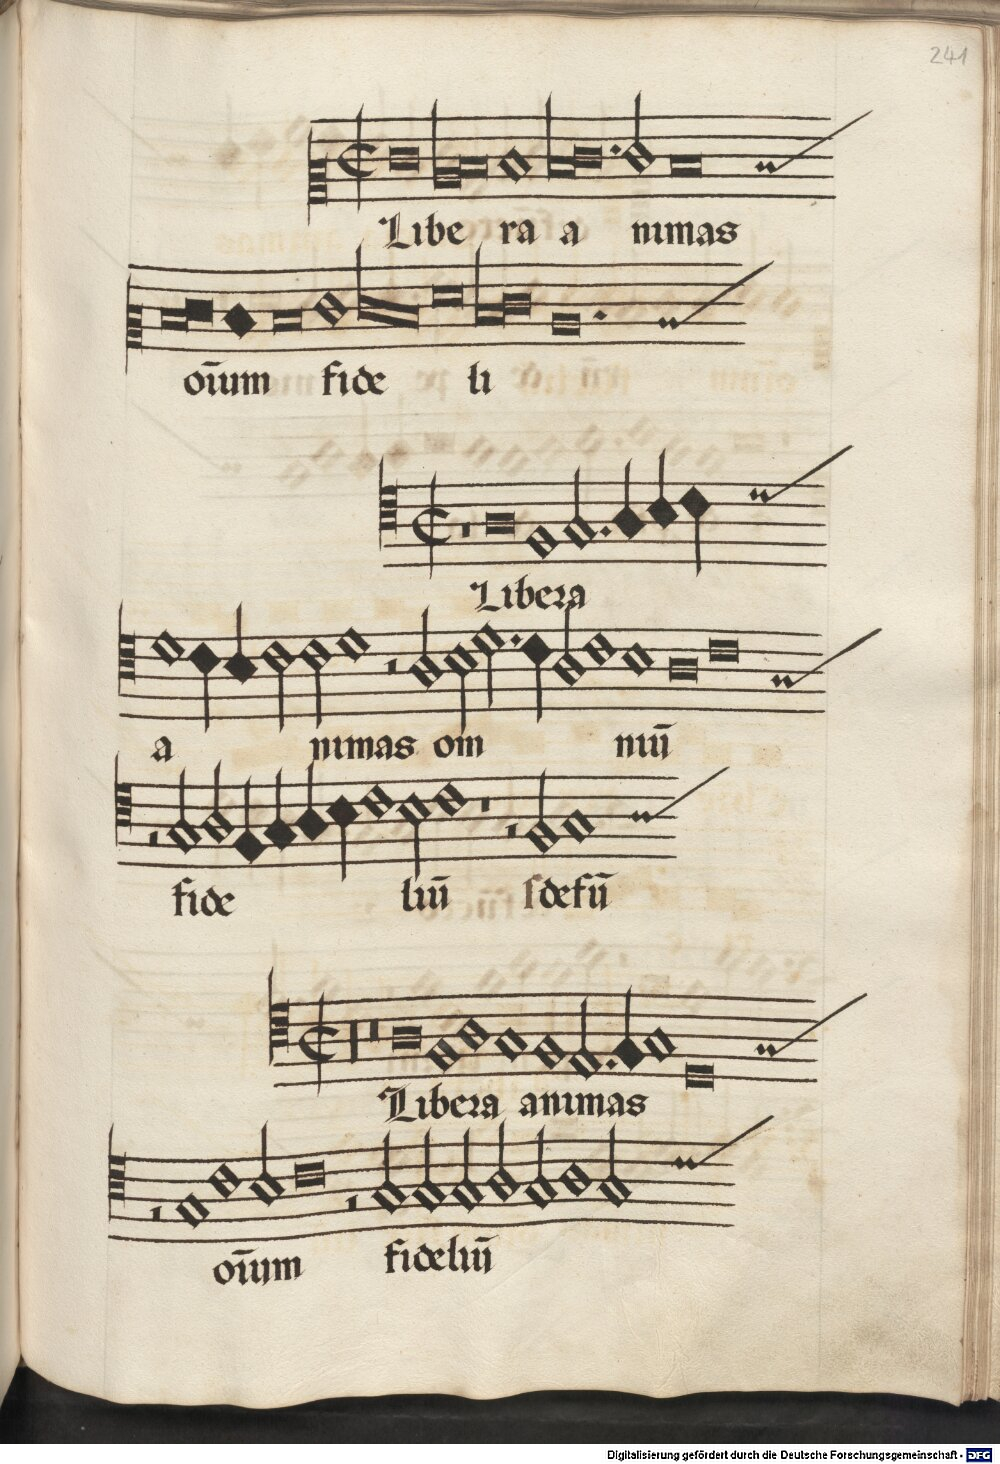 241
Libe ra a nimas
oı̄um fide li
Libera
a nimas om niū
fide liū defū
Libera animas
oı̄um fideliū
Digitalisierung gefördert durch die Deutsche Forschungsgemeinschaft - DFG